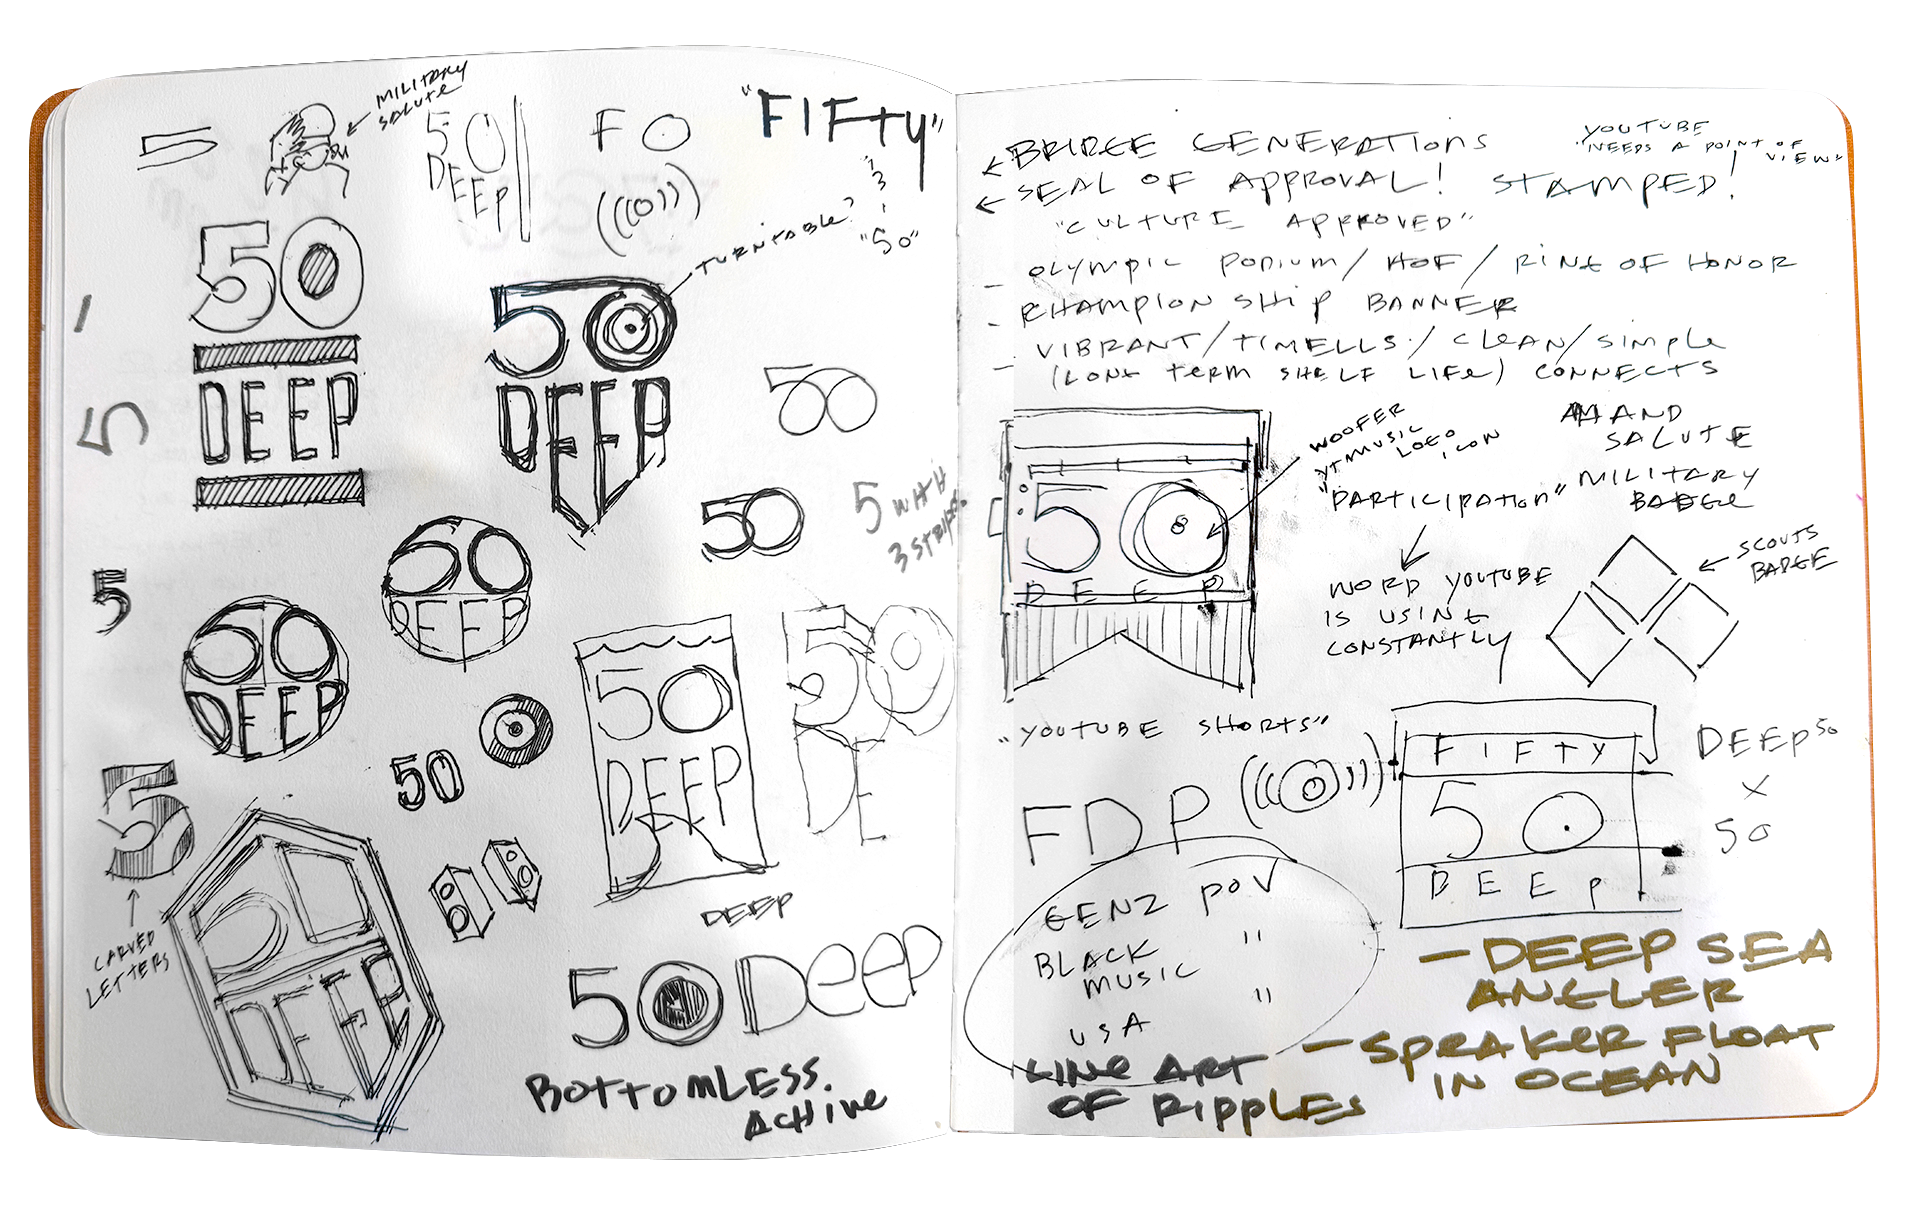 5
MILITARY
SALUTE
50
DEEP
FO
"FIFTY"
1
3
1
"50"
TURNTABLE?
50
DEEP
50
DEEP
5
50
50
5 WITH
3 STRIPES
5
50
DEEP
50
DEEP
50
DEEP
50
DE
5
50
CARVED
LETTERS
DEEP
DEEP
50 DEEP
BOTTOMLESS.
ACHIVE
BRIDGE GENERATIONS
SEAL OF APPROVAL! STAMPED!
YOUTUBE
"NEEDS A POINT OF
VIEW"
"CULTURE APPROVED"
- OLYMPIC PODIUM / HOF / RING OF HONOR
- CHAMPION SHIP BANNER
- VIBRANT / TIMELLS / CLEAN / SIMPLE
(LONG TERM SHELF LIFE) CONNECTS
50
DEEP
WOOFER
YT MUSIC
LOGO
ICON
"PARTICIPATION"
WORD YOUTUBE
IS USING
CONSTANTLY
HAND
SALUTE
MILITARY
BADGE
SCOUTS
BADGE
"YOUTUBE SHORTS"
FDP
FIFTY
50
DEEP
DEEP 50
X
50
GENZ POV
BLACK "
MUSIC
USA "
LINE ART
OF RIPPLES
- DEEP SEA
ANGLER
- SPEAKER FLOAT
IN OCEAN